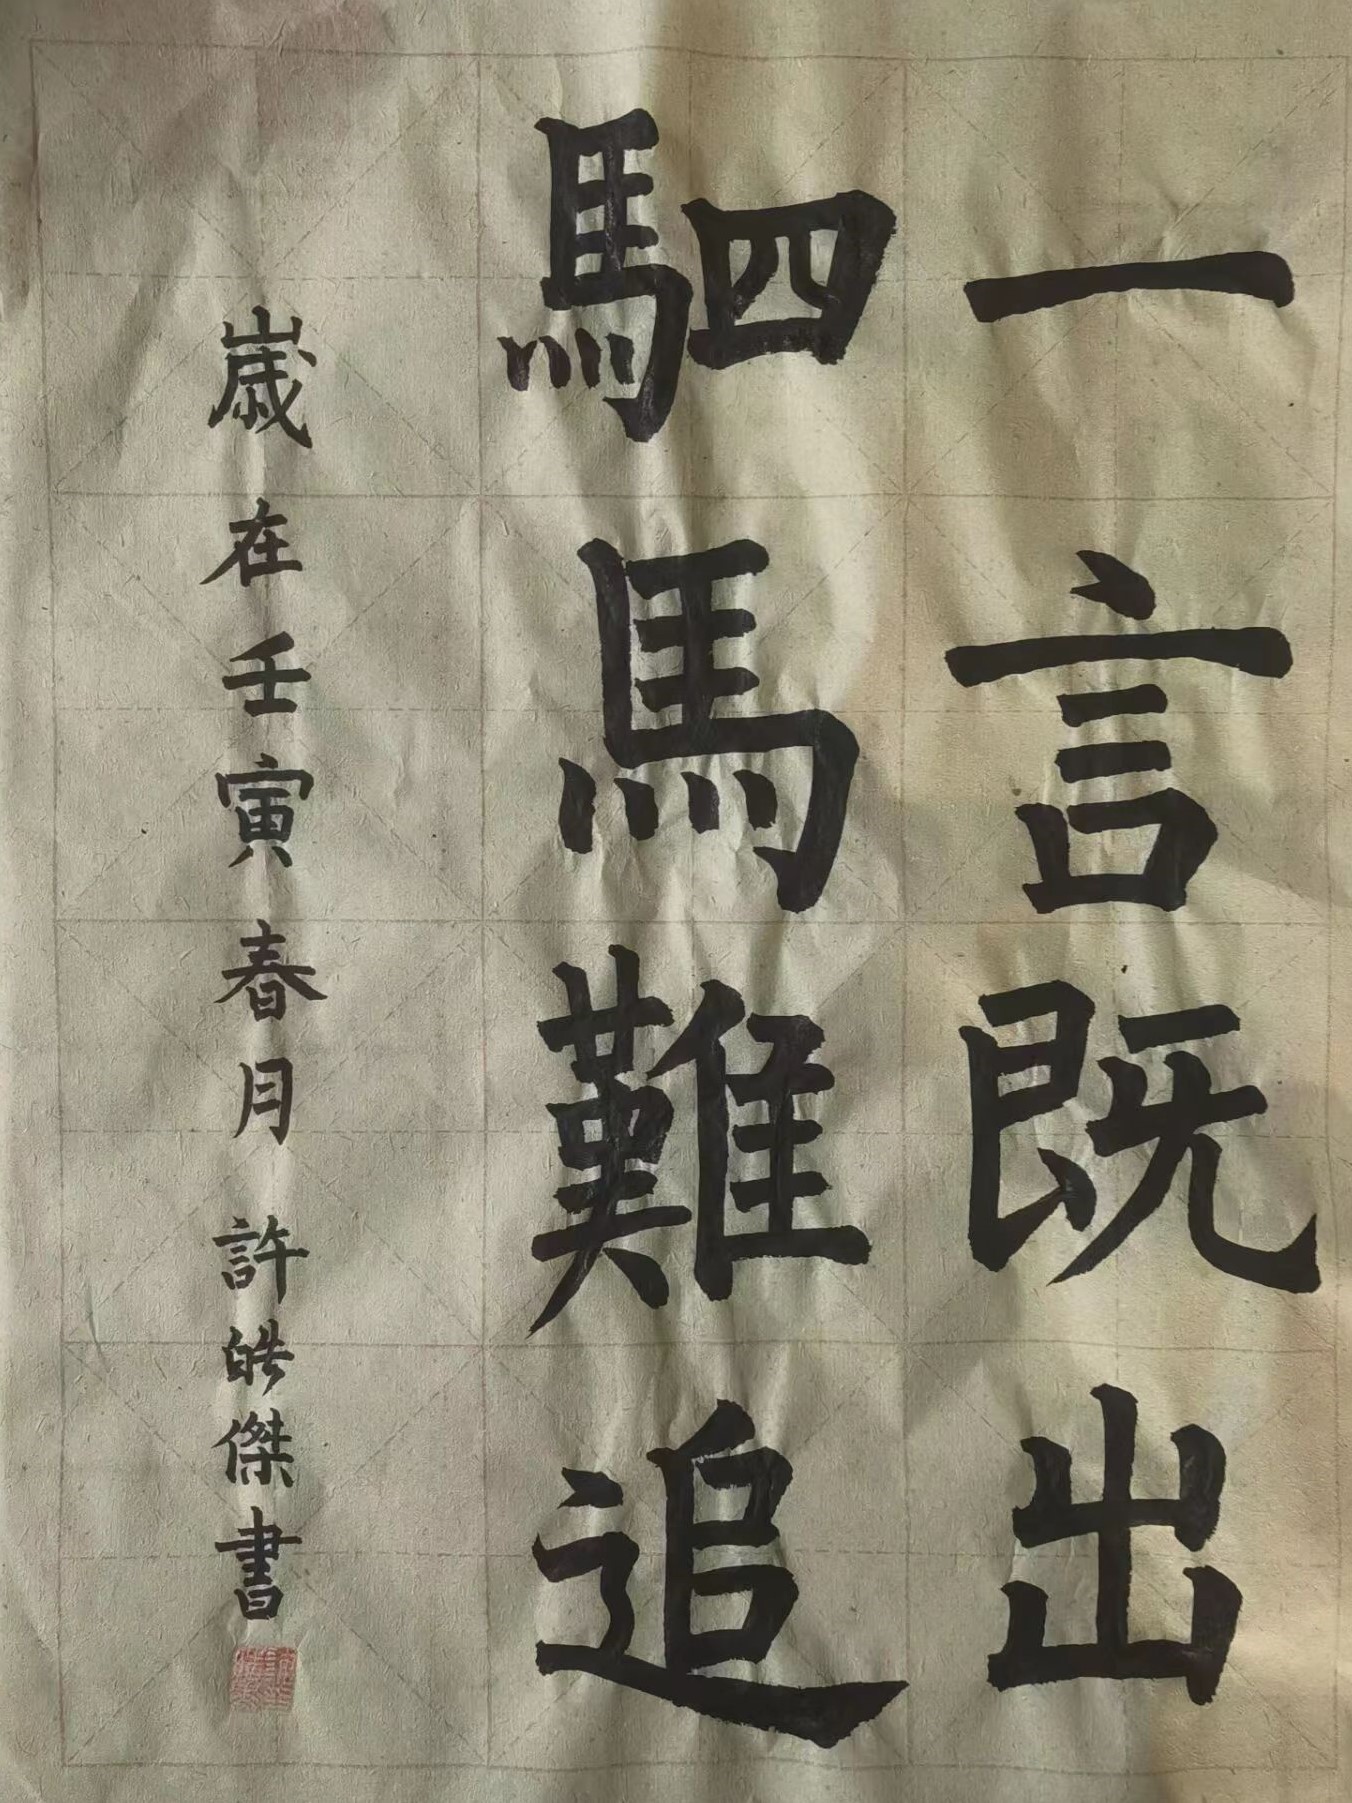 一言既出
駟馬難追
歳在壬寅春月許皓傑書